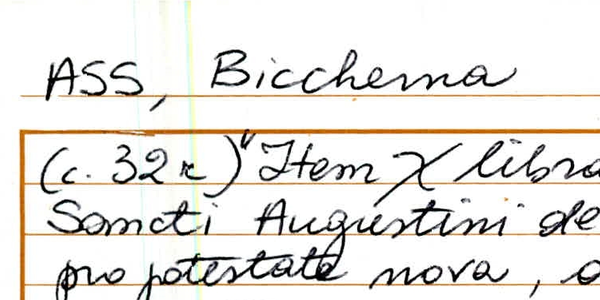 ASS, Biccherna
(c. 32 r) "Item X libra
Sancti Augustini de
pro potestate nova,